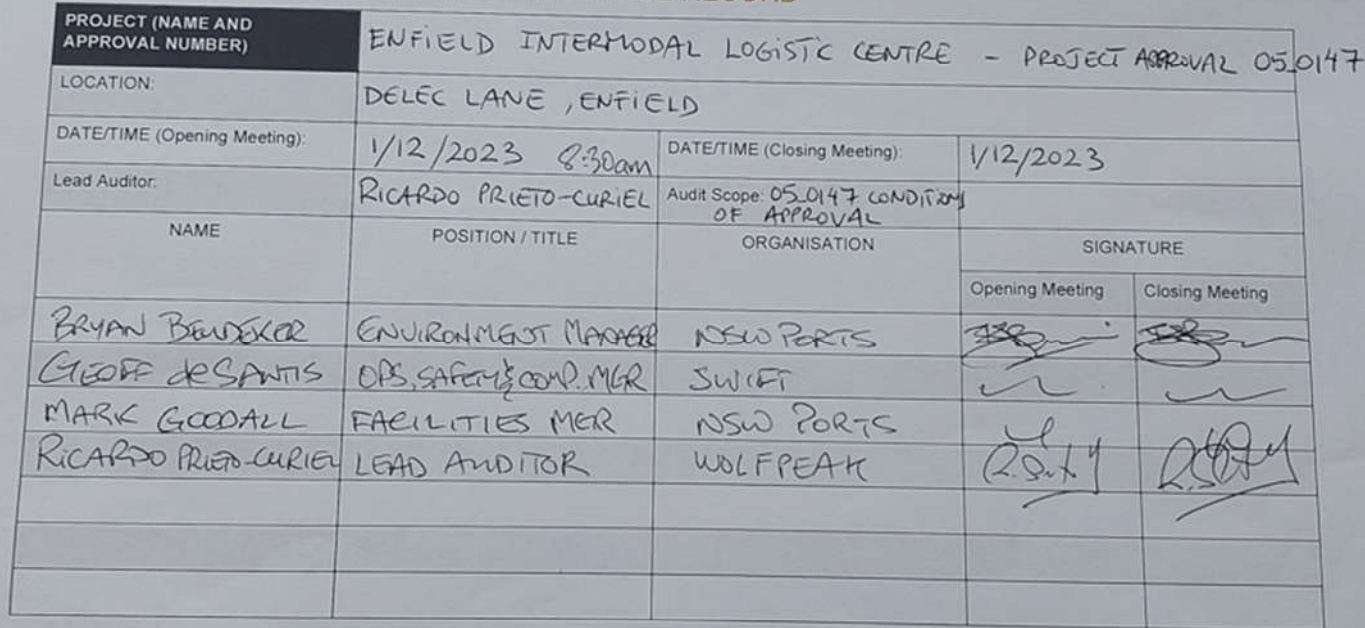 PROJECT (NAME AND APPROVAL NUMBER) ENFIELD INTERMODAL LOGISTIC CENTRE - PROJECT APPROVAL 05_0147
LOCATION: DELEC LANE, ENFIELD
DATE/TIME (Opening Meeting): 1/12/2023 8:30am DATE/TIME (Closing Meeting): 1/12/2023
Lead Auditor: RICARDO PRIETO-CURIEL Audit Scope: 05_0147 CONDITIONS
OF APPROVAL
NAME POSITION / TITLE ORGANISATION SIGNATURE
Opening Meeting Closing Meeting
BRYAN ENVIRONMENT MANAGER NSW PORTS
GEOFF deSANTIS OPS, SAFETY & COMP. MGR SWIFT
MARK GOODALL FACILITIES MGR NSW PORTS
RICARDO PRIETO-CURIEL LEAD AUDITOR WOLFPEAK